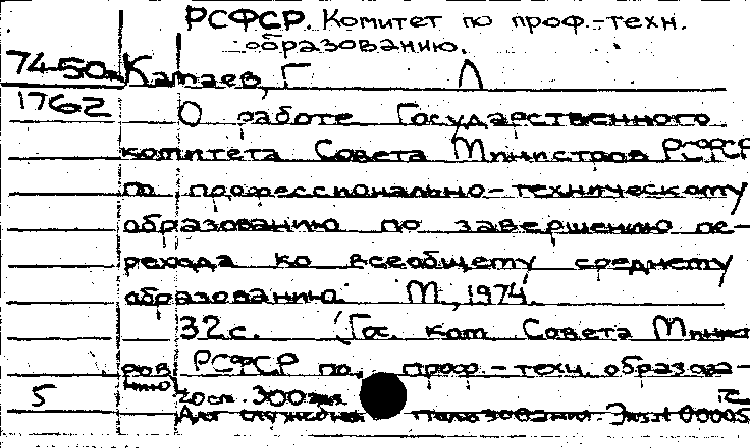 РСФСР. Комитет по проф.-техн.
образованию.
74-50
Катаев, Г Л
1762
О работе Государственного
комитета Совета Министров РСФСР
по профессионально-техническому
образованию по завершению пе-
рехода ко всеобщему среднему
образованию. М., 1974.
32 с. (Гос. ком. Совета Минист
ров РСФСР по проф.-техн. образова-
нию)
5 20 см. 300 экз.
Для служебного пользования. Экз.№ 00005